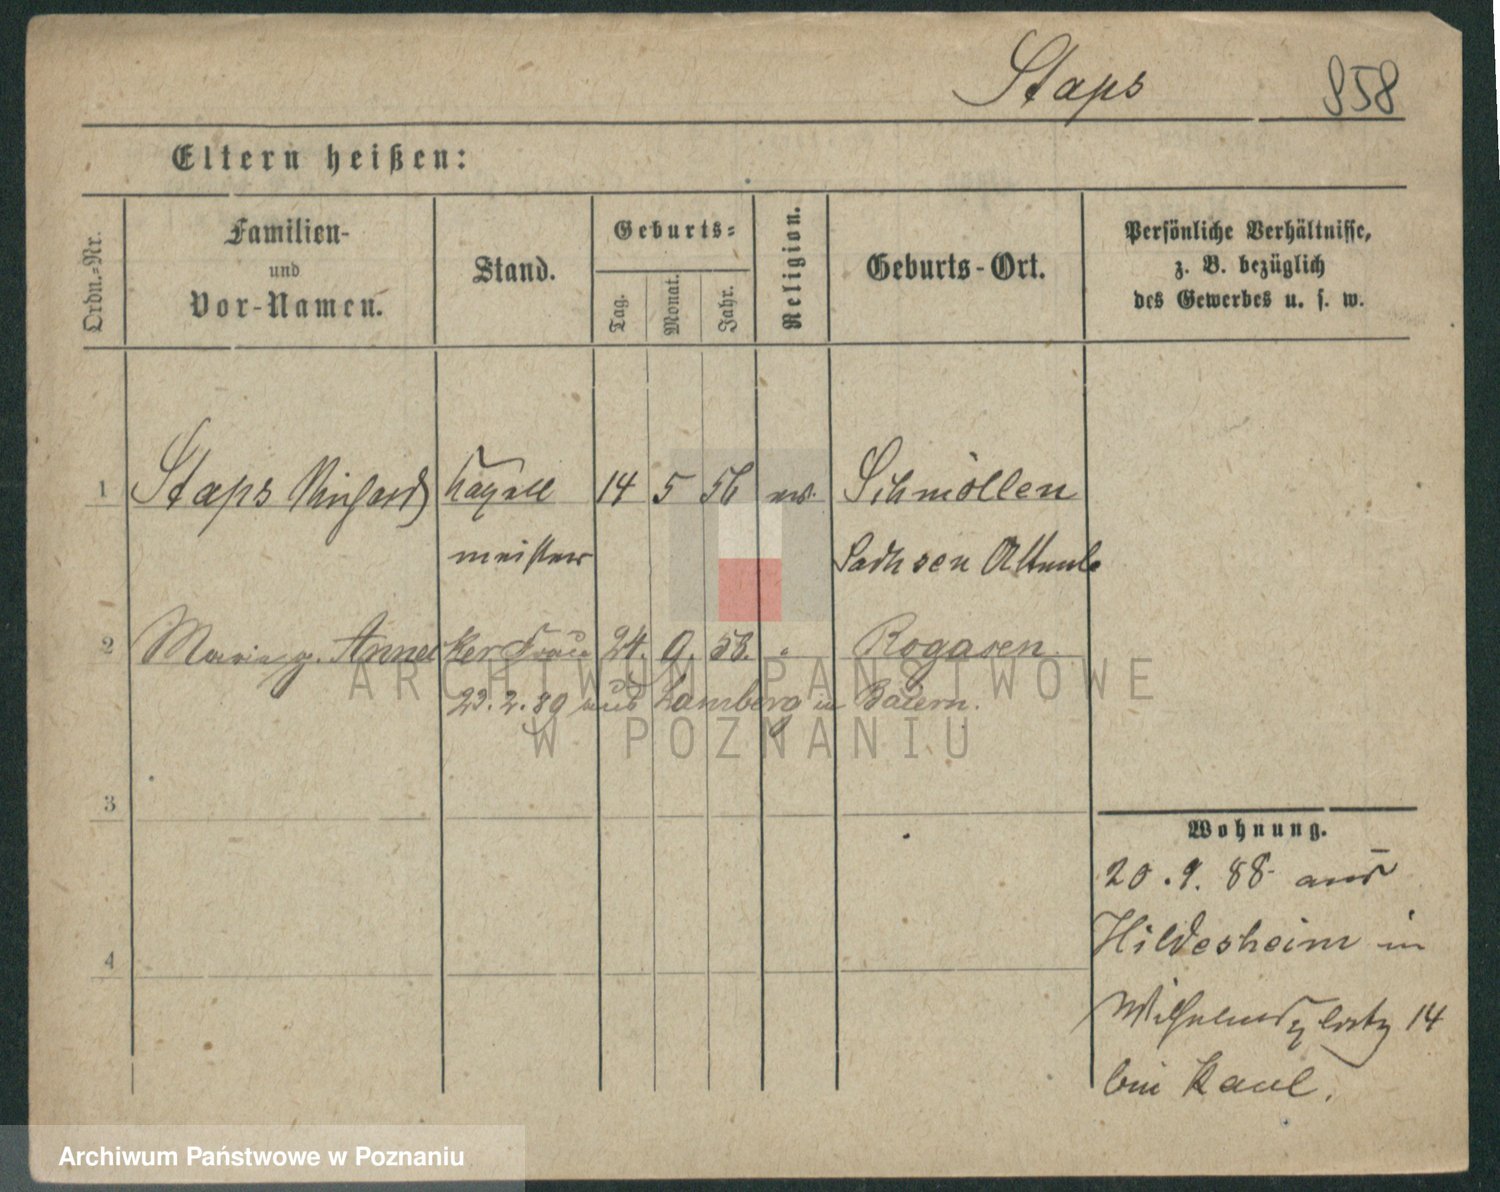 Staps 858
Eltern heißen:
Ordn.-Nr.
Familien-
und
Vor-Namen.
Stand.
Geburts-
Tag.
Monat.
Jahr.
Religion.
Geburts-Ort.
Persönliche Verhältnisse,
z. B. bezüglich
des Gewerbes u. s. w.
1 Staps Richard Kapell 14 5 56 ev. Schmöllen
meister Sachsen Altenb
2 Maria g. Annecker Frau 24. 9. 58. " Rogasen
23.2.89 aus Bamberg in Baiern.
3
4
Wohnung.
20.9.88 aus
Hildesheim in
Wilhelmsplatz 14
bei Kaul.
ARCHIWUM PAŃSTWOWE
W POZNANIU
Archiwum Państwowe w Poznaniu